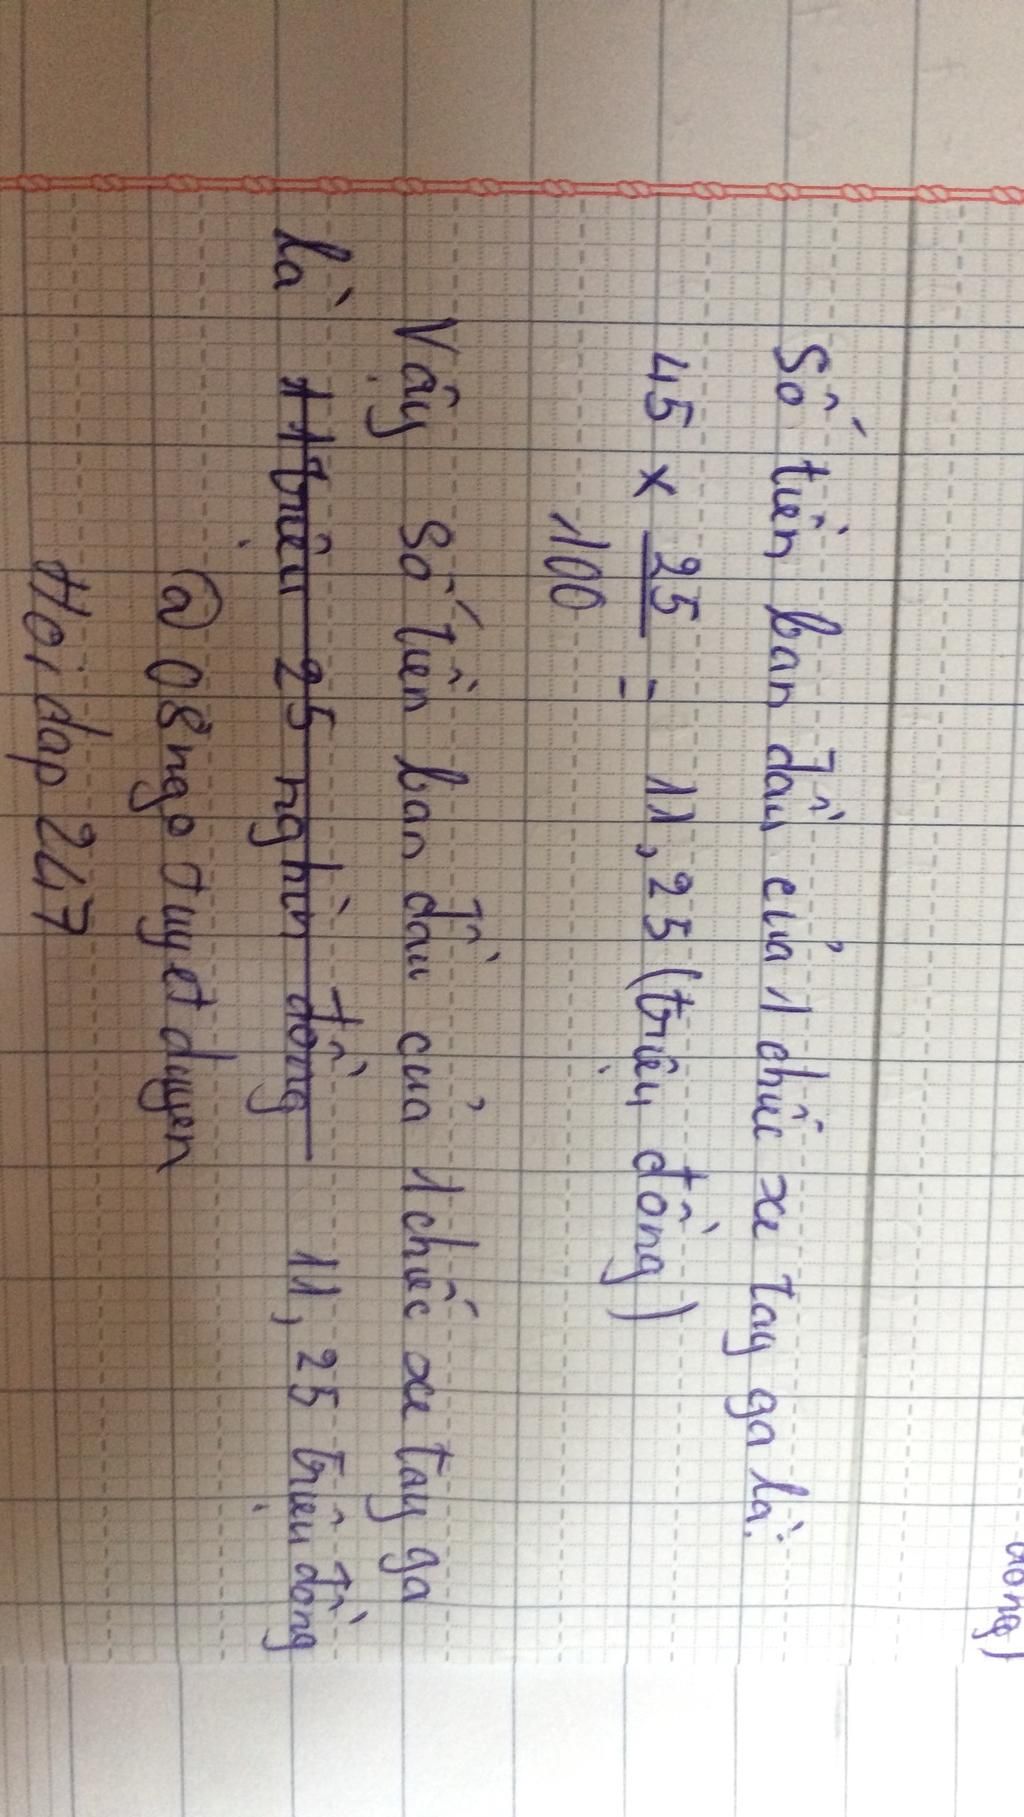 đồng)
Số tiền ban đầu của 1 chiếc xe tay ga là:
45 x 25/100 = 11,25 (triệu đồng)
Vậy số tiền ban đầu của 1 chiếc xe tay ga
là 11 triệu 25 nghìn đồng 11,25 triệu đồng
@ 08 ngotuyetduyen
Hoidap 247